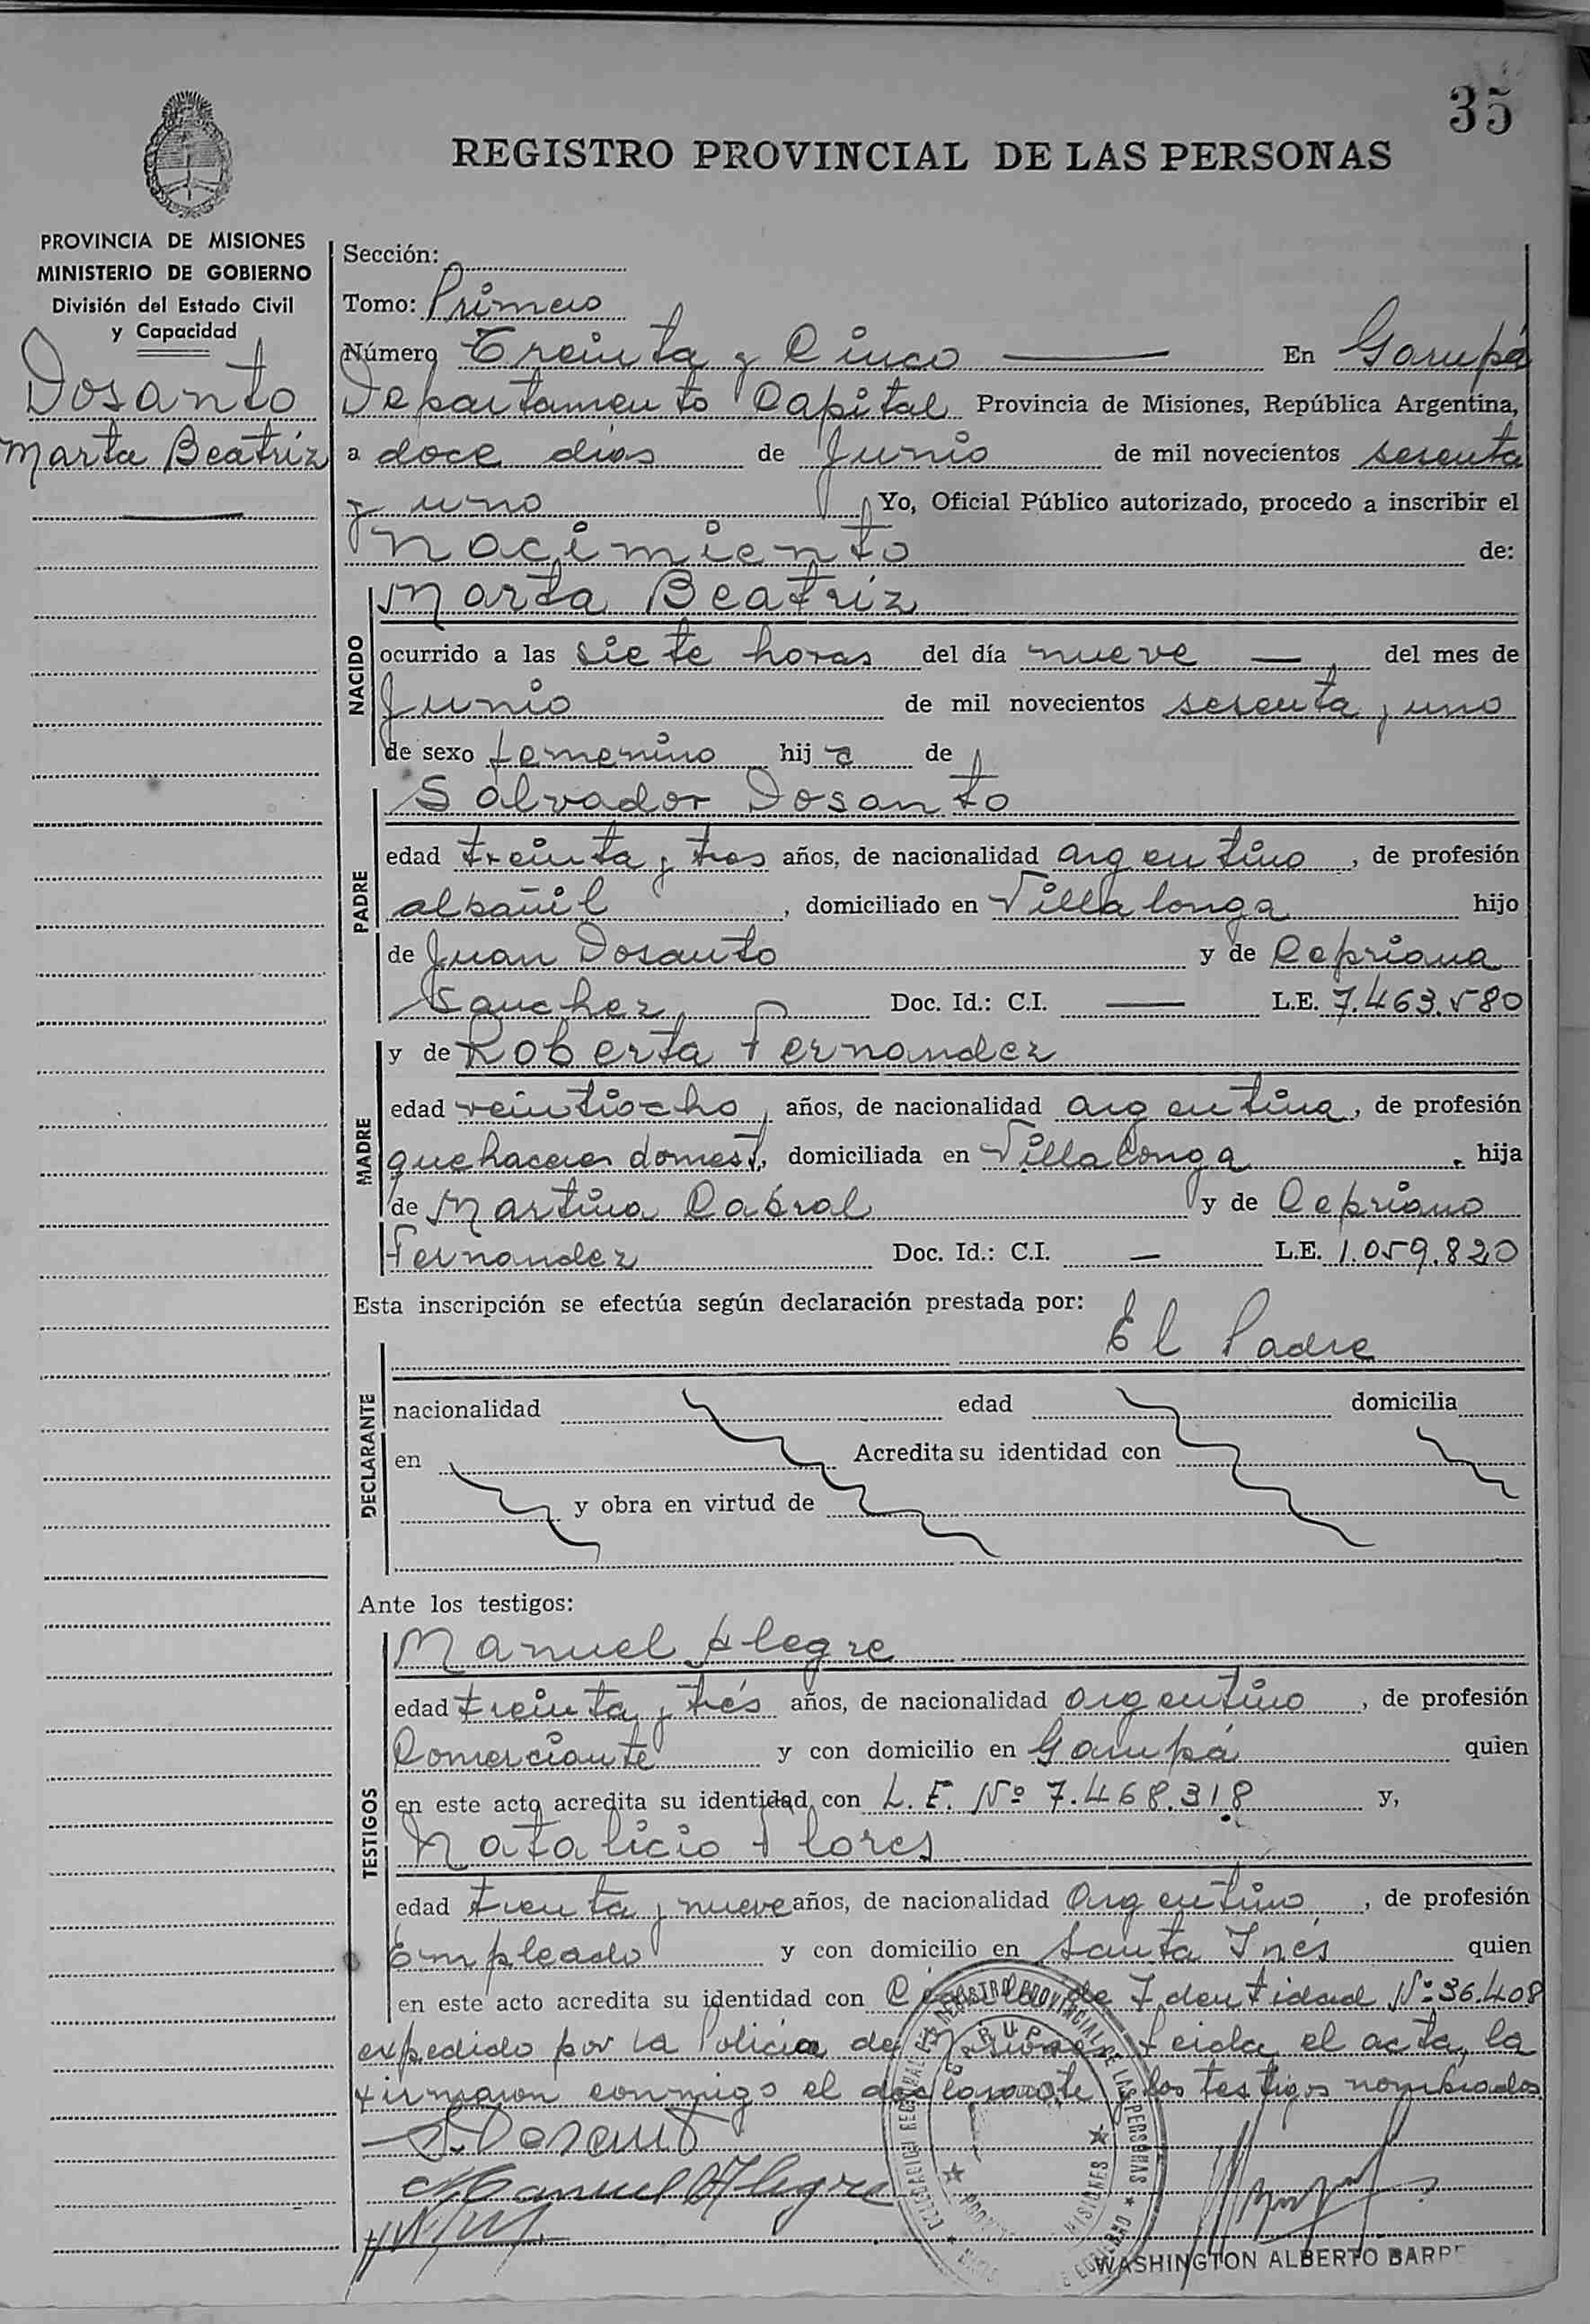 35
REGISTRO PROVINCIAL DE LAS PERSONAS
PROVINCIA DE MISIONES
MINISTERIO DE GOBIERNO
División del Estado Civil
y Capacidad
Dosanto
Marta Beatriz
Sección:
Tomo: Primero
Número Treinta y Cinco En Garupá
Departamento Capital Provincia de Misiones, República Argentina,
a doce dias de Junio de mil novecientos sesenta
y uno Yo, Oficial Público autorizado, procedo a inscribir el
Nacimiento de:
Marta Beatriz
NACIDO
ocurrido a las siete horas del día nueve del mes de
Junio de mil novecientos sesenta y uno
de sexo femenino hij a de
Salvador Dosanto
PADRE
edad treinta y tres años, de nacionalidad argentino, de profesión
albañil, domiciliado en Villa longa hijo
de Juan Dosanto y de Cepriana
Sanchez Doc. Id.: C.I. — L.E. 7.463.580
MADRE
y de Roberta Fernandez
edad veintiocho, años, de nacionalidad argentina, de profesión
quehaceres domest., domiciliada en Villa longa. hija
de Martina Cabral y de Cepriano
Fernandez Doc. Id.: C.I. — L.E. 1.059.820
Esta inscripción se efectúa según declaración prestada por:
El Padre
DECLARANTE
nacionalidad edad domicilia
en Acredita su identidad con
y obra en virtud de
Ante los testigos:
Manuel Alegre
TESTIGOS
edad treinta y trés años, de nacionalidad argentino, de profesión
Comerciante y con domicilio en Garupá quien
en este acto acredita su identidad con L.E. Nº 7.468.318 y,
Natalicio Flores
edad treinta y nueve años, de nacionalidad Argentino, de profesión
Empleado y con domicilio en Santa Inés quien
en este acto acredita su identidad con Cédula de Identidad Nº 36.408
expedido por la Policia de Misiones Leida el acta, la
firmaron conmigo el declarante y los testigos nombrados
S. Dosanto
Manuel Alegre
REGISTRO PROVINCIAL DE LAS PERSONAS
GARUPA
MISIONES
WASHINGTON ALBERTO BARRE